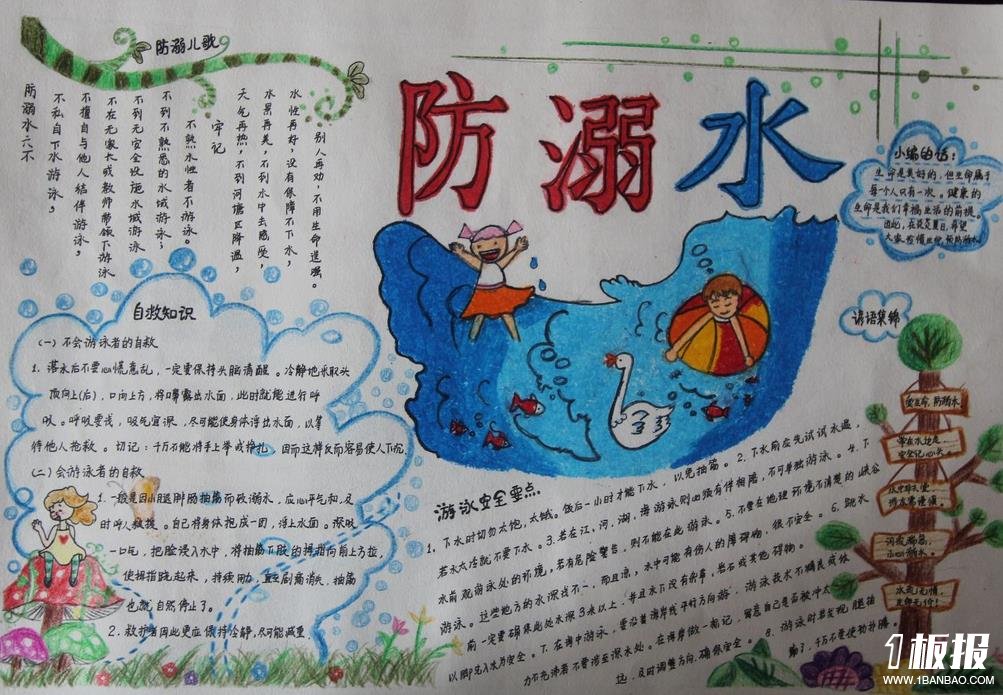 防溺水
防溺儿歌
防溺水六不
不私自下水游泳；
不擅自与他人结伴游泳；
不在无家长或教师带领下游泳
不到无安全设施水域游泳
不到不熟悉的水域游泳；
不熟水性者不游泳。
牢记
天气再热，不到河塘区降温；
水景再美，不到水中去感受，
水性再好，没有保障不下水，
别人再劝，不用生命逞强。
小编的话：
生命是美好的，但生命属于
每个人只有一次。健康的
生命是我们幸福生活的前提。
因此，在炎炎夏日，希望
大家
自救知识
（一）不会游泳者的自救
1. 落水后不要心慌意乱，一定要保持头脑清醒。冷静地采取头
顶向上（后），口向上方，将嘴露出水面，此时就能进行呼
吸。呼吸要浅，吸气宜深，尽可能使身体浮出水面，以等
待他人抢救。切记：千万不能将手上举或挣扎，因而这样反而容易使人下沉
（二）会游泳者的自救
1. 一般是因小腿腓肠抽筋而致溺水，应心平气和，及
时呼人救援。自己将身体抱成一团，浮上水面。深吸
一口气，把脸浸入水中，将抽筋下肢的拇指向前上方拉，
使拇指跷起来，持续用力，直至剧痛消失，抽筋
也就自然停止了。
2. 救护者因此更应保持冷静，尽可能减重，
游泳安全要点
1. 下水时切勿太饱，太饿。饭后一小时才能下水，以免抽筋。2. 下水前应先试试水温，
若水太冷就不要下水。3. 若在江，河，湖，海游泳则必须有伴相陪，不可单独游泳。4. 下
水前观游泳处的环境，若有危险警告，则不能在此游泳。5. 不要在地理环境不清楚的峡谷
游泳。这些地方的水深浅不一，而且凉，水中可能有伤人的障碍物，很不安全。6. 跳水
前一定要确保此处水深3米以上，并且水下没有杂草，岩石或其他碍物。
以脚先入水为安全。7. 在海中游泳，要沿着海岸线平行方向游，游泳技术不精良或体
力不充沛者不要涉至深水处。在海岸做一标记，留意自己是否被冲太
远，及时调整方向，确保安全。8. 游泳时若发现腿抽
筋了，千万不要
谚语集锦
防溺水。
常在水边走
安全记心头。
水火无情
1板报
WWW.1BANBAO.COM